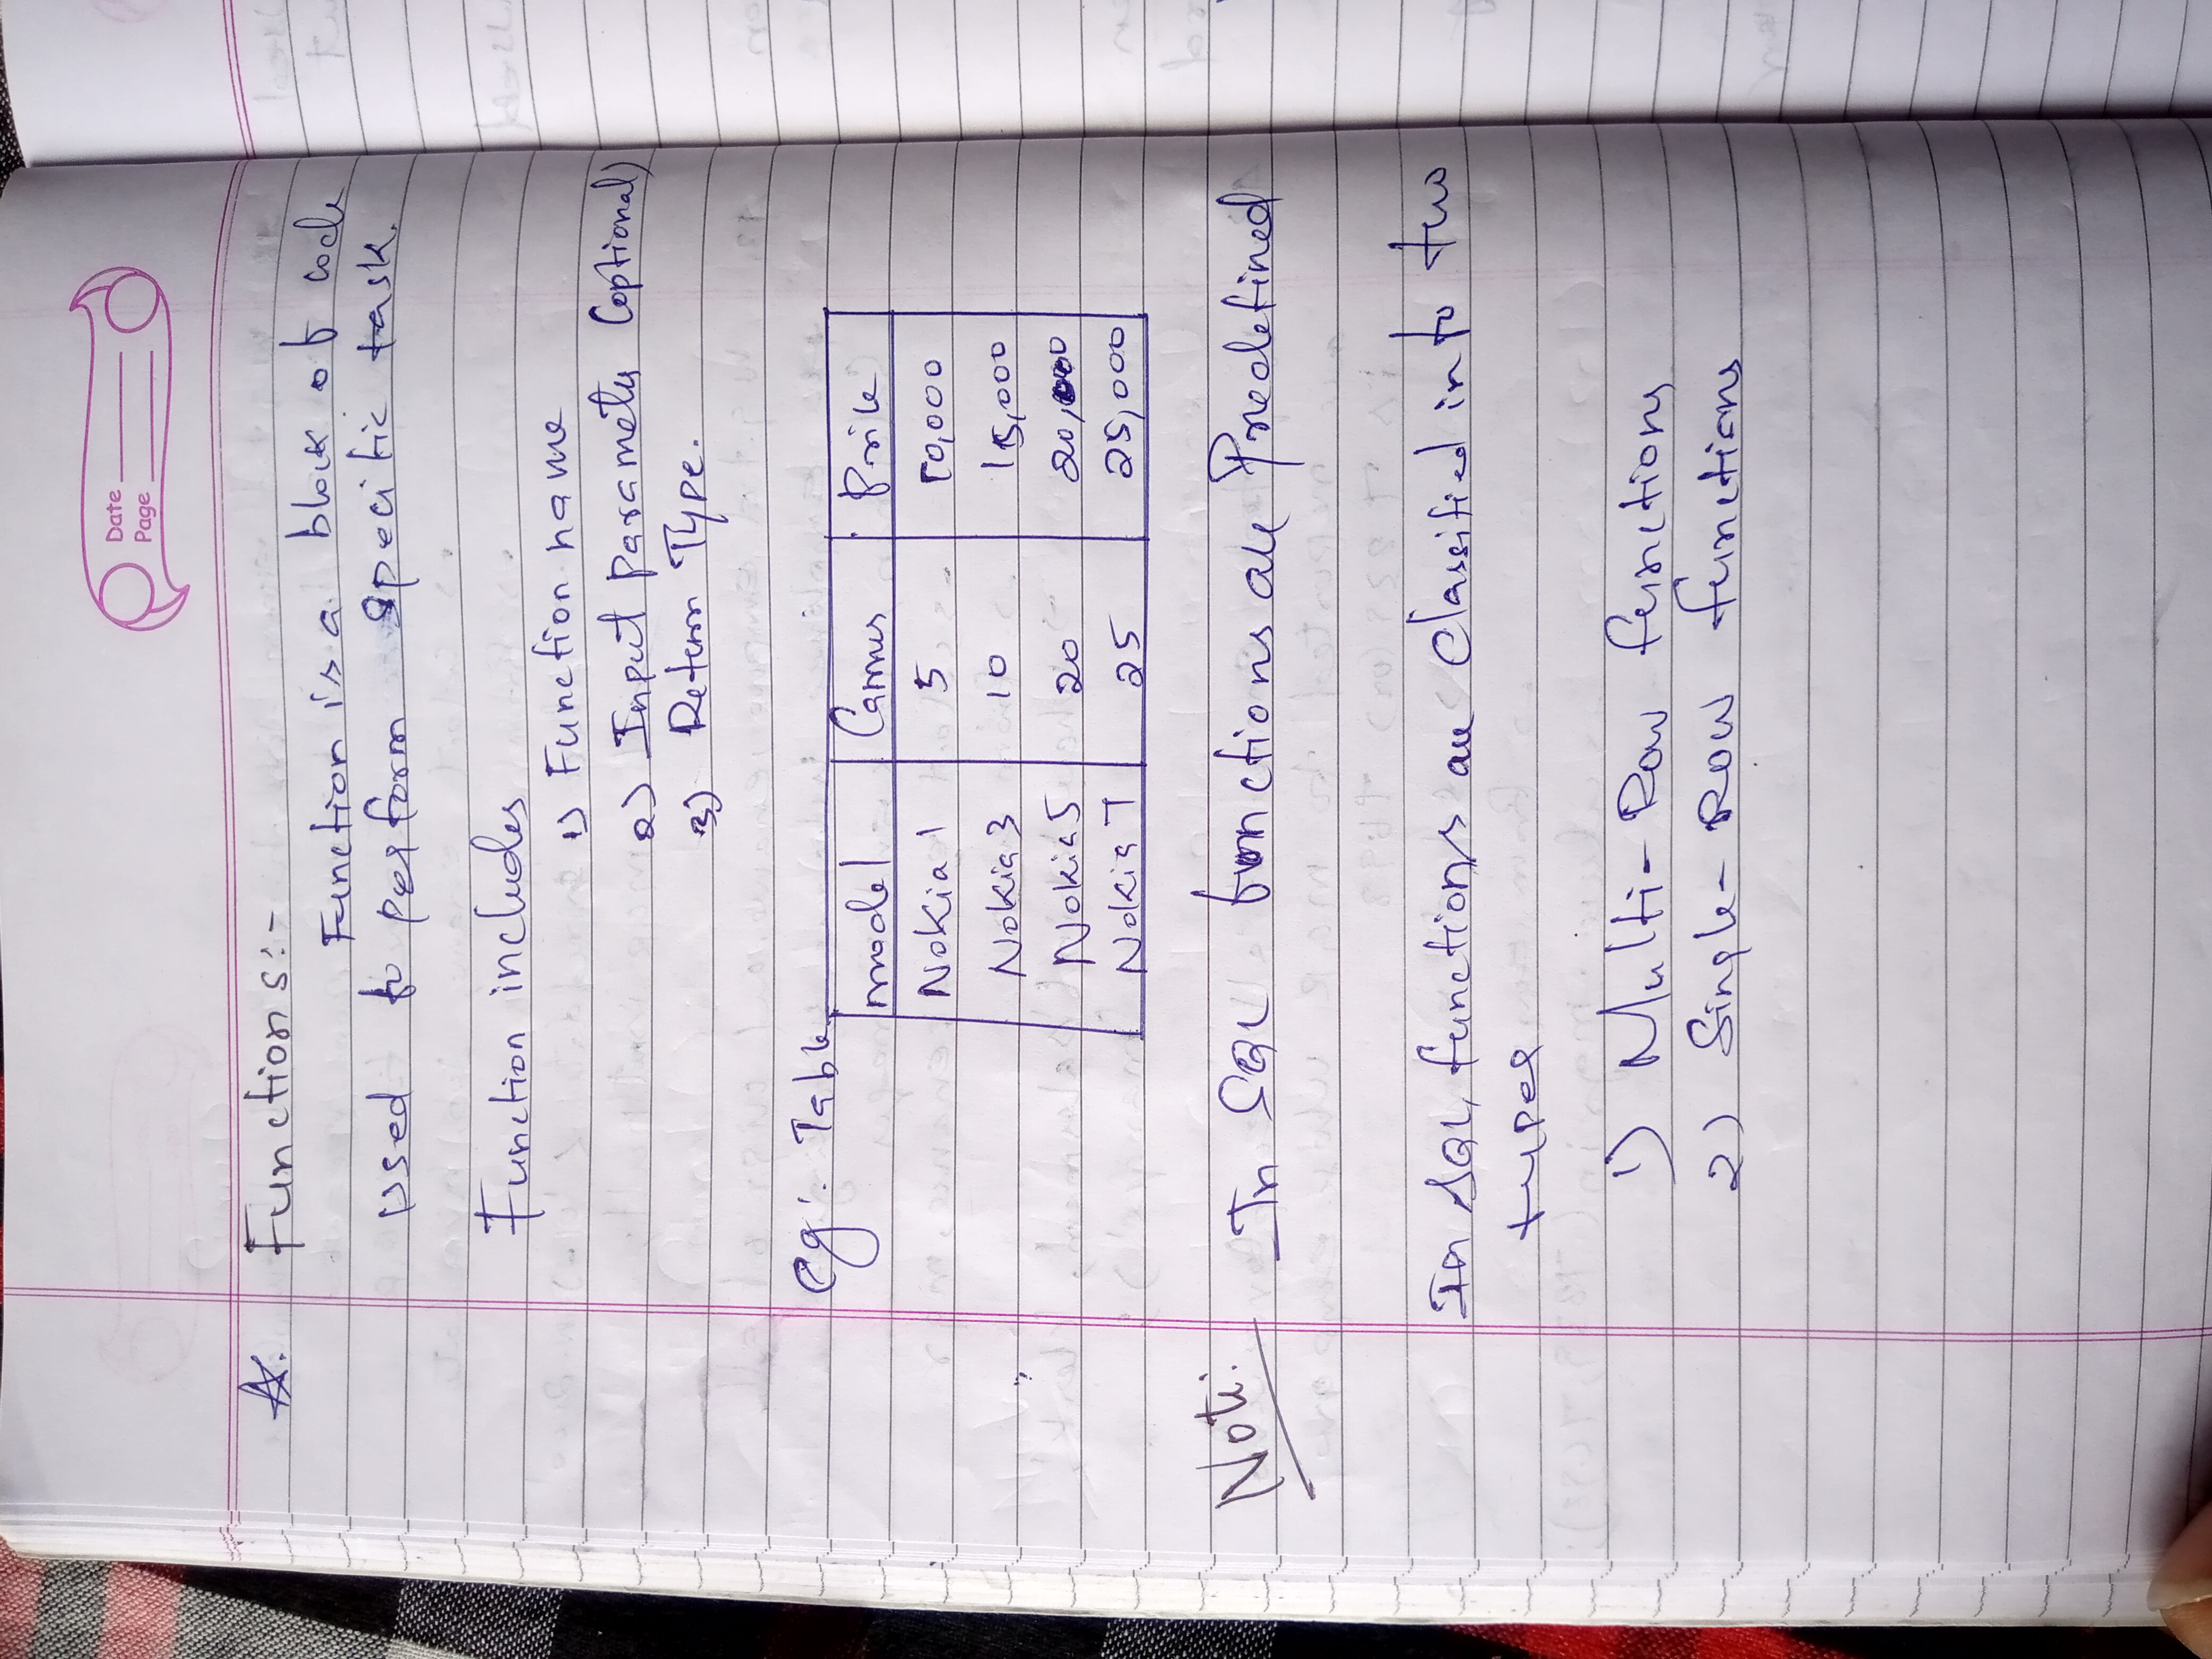 Date
Page
☆. Functions:-
Function is a block of code
used to perform specific task.
Function includes
1) Function name
2) Input parameter (optional)
3) Return Type.
eg: Table
model Camera Price
Nokia 1 5 10,000
Nokia 3 10 15,000
Nokia 5 20 20,000
Nokia 7 25 25,000
Note: In SQL functions are Predefined
In SQL, functions are classified into two
types
1) Multi-Row functions
2) Single-Row functions